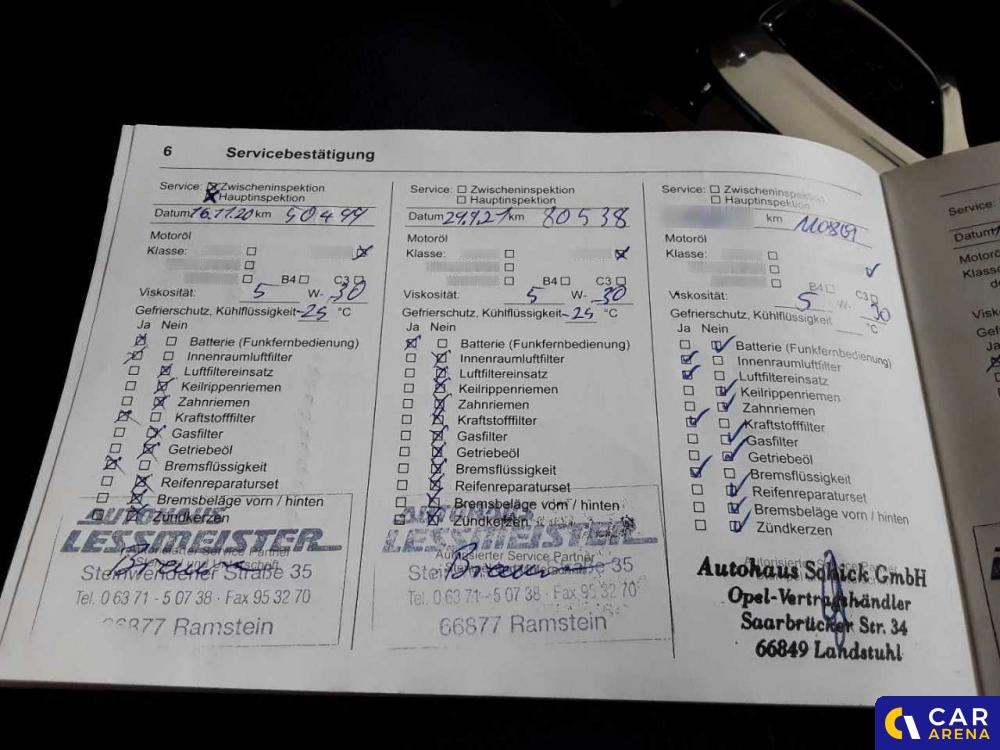 6 Servicebestätigung
Service: Zwischeninspektion
Hauptinspektion
Datum 16.11.20 km 50499
Motoröl
Klasse:
B4 C3
Viskosität: 5 W- 30
Gefrierschutz, Kühlflüssigkeit -25 °C
Ja Nein
Batterie (Funkfernbedienung)
Innenraumluftfilter
Luftfiltereinsatz
Keilrippenriemen
Zahnriemen
Kraftstofffilter
Gasfilter
Getriebeöl
Bremsflüssigkeit
Reifenreparaturset
Bremsbeläge vorn / hinten
Zündkerzen
AUTOHAUS
LESSMEISTER
Autorisierter Service Partner
Steinwendener Straße 35
Tel. 0 63 71 - 5 07 38 · Fax 95 32 70
66877 Ramstein
Service: Zwischeninspektion
Hauptinspektion
Datum 29.9.21 km 80538
Motoröl
Klasse:
B4 C3
Viskosität: 5 W- 30
Gefrierschutz, Kühlflüssigkeit -25 °C
Ja Nein
Batterie (Funkfernbedienung)
Innenraumluftfilter
Luftfiltereinsatz
Keilrippenriemen
Zahnriemen
Kraftstofffilter
Gasfilter
Getriebeöl
Bremsflüssigkeit
Reifenreparaturset
Bremsbeläge vorn / hinten
Zündkerzen
AUTOHAUS
LESSMEISTER
Autorisierter Service Partner
35
Tel. 0 63 71 - 5 07 38 · Fax 95 32 70
66877 Ramstein
Service: Zwischeninspektion
Hauptinspektion
km
Motoröl
Klasse:
B4 C3
Viskosität: 5 W- 30
Gefrierschutz, Kühlflüssigkeit °C
Ja Nein
Batterie (Funkfernbedienung)
Innenraumluftfilter
Luftfiltereinsatz
Keilrippenriemen
Zahnriemen
Kraftstofffilter
Gasfilter
Getriebeöl
Bremsflüssigkeit
Reifenreparaturset
Bremsbeläge vorn / hinten
Zündkerzen
Autohaus Schick GmbH
Opel-Vertragshändler
Saarbrücker Str. 34
66849 Landstuhl
Service:
Datum
CAR
ARENA